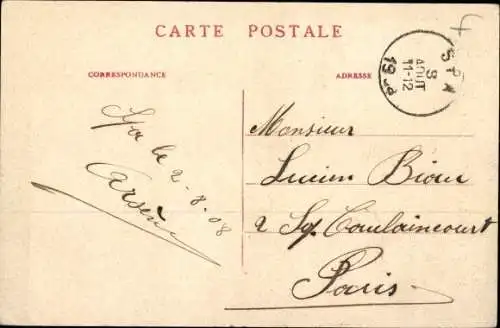 CARTE POSTALE
CORRESPONDANCE
ADRESSE
SPA
3
AOUT
11-12
19
Spa le 2-8-08
Arsène
Monsieur
Lucien Bioux
2 Sq. Caulaincourt
Paris